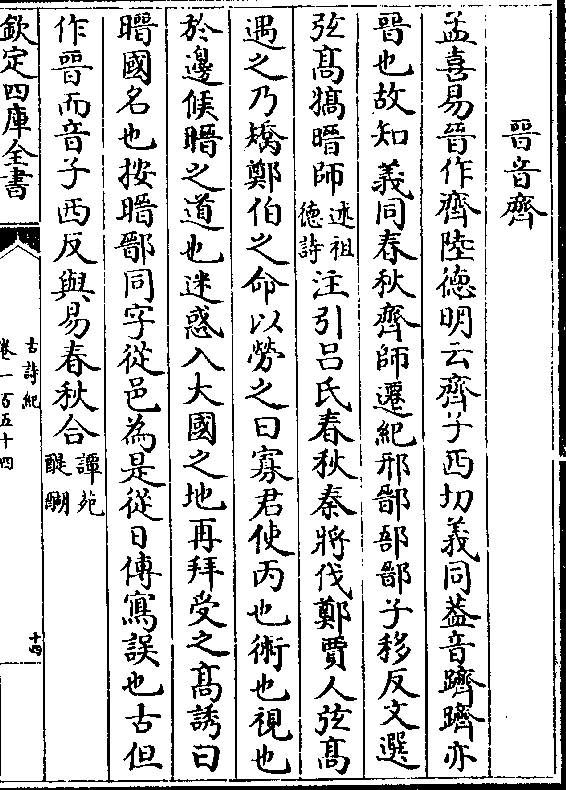 晉音齊
孟喜易晉作齊陸德明云齊子西切義同葢音躋躋亦
晉也故知義同春秋齊師遷紀郱鄑郚鄑子移反文選
弦髙犒㬜師述祖德詩注引吕氏春秋秦將伐鄭賈人弦髙
遇之乃矯鄭伯之命以勞之曰寡君使丙也術也視也
於邊候㬜之道也迷惑入大國之地再拜受之髙誘曰
㬜國名也按㬜鄑同字從邑為是從日傳寫誤也古但
作晉而音子西反與易春秋合譚苑醍醐
欽定四庫全書
古詩紀
卷一百五十四
十四